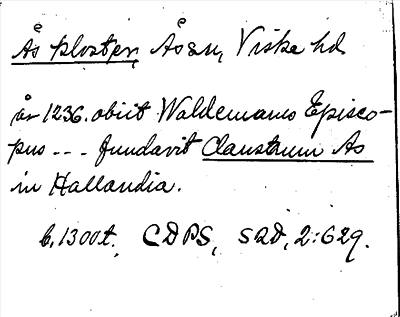 Ås kloster, Åsen, Viske hd.
år 1236. obiit Waldemarus Episco-
pus --- fundavit Claustrum As
in Hallandia.
b. 1300t. CDPS, SRD, 2:629.